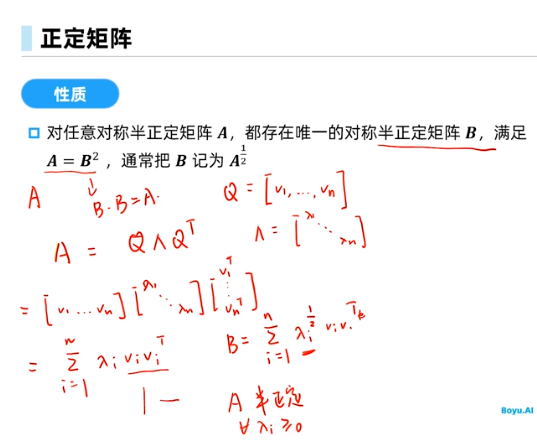 正定矩阵
性质
对任意对称半正定矩阵 A，都存在唯一的对称半正定矩阵 B，满足
A = B²，通常把 B 记为 A^{1/2}
A
B·B=A.
Q = [v₁, ..., vₙ]
A = QΛQᵀ
Λ = [λ₁ ⋱ λₙ]
= [v₁ ... vₙ] [λ₁ ⋱ λₙ] [v₁ᵀ ⋮ vₙᵀ]
= Σ_{i=1}^{n} λᵢ vᵢvᵢᵀ
B = Σ_{i=1}^{n} λᵢ^{1/2} vᵢvᵢᵀ
| —
A 半正定
∀ λᵢ ≥ 0
Boyu.AI